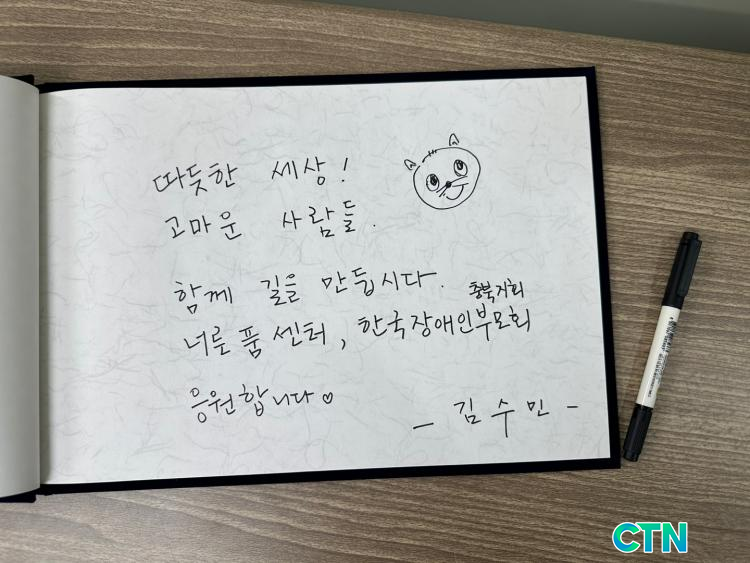 따듯한 세상!
고마운 사람들.
함께 길을 만듭시다.
충북지회
너른품센터, 한국장애인부모회
응원합니다♡
- 김수민 -
CTN